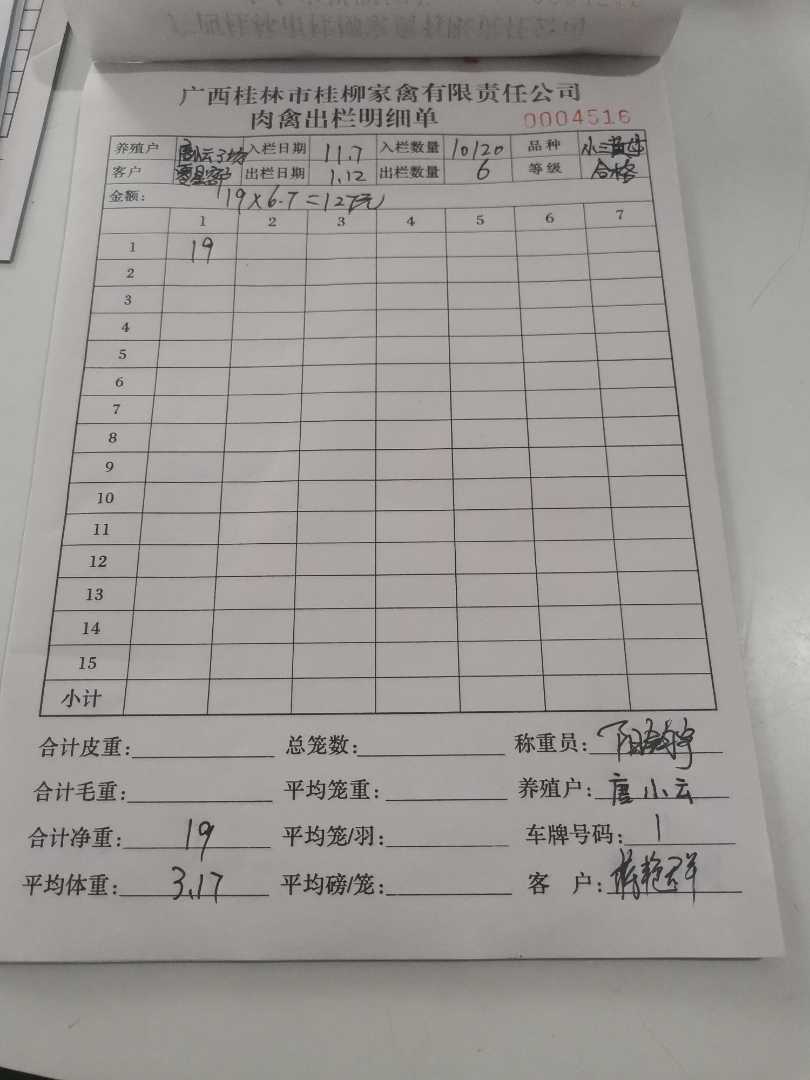 广西桂林市桂柳家禽有限责任公司
肉禽出栏明细单 0004516
养殖户 唐小云 入栏日期 11.7 入栏数量 10120 品种 小三黄
客户 零星客户 出栏日期 1.12 出栏数量 6 等级 合格
金额: 19×6.7=127元
1 2 3 4 5 6 7
1 19
2
3
4
5
6
7
8
9
10
11
12
13
14
15
小计
合计皮重: 总笼数: 称重员:
合计毛重: 平均笼重: 养殖户: 唐小云
合计净重: 19 平均笼/羽: 车牌号码: 1
平均体重: 3.17 平均磅/笼: 客 户: